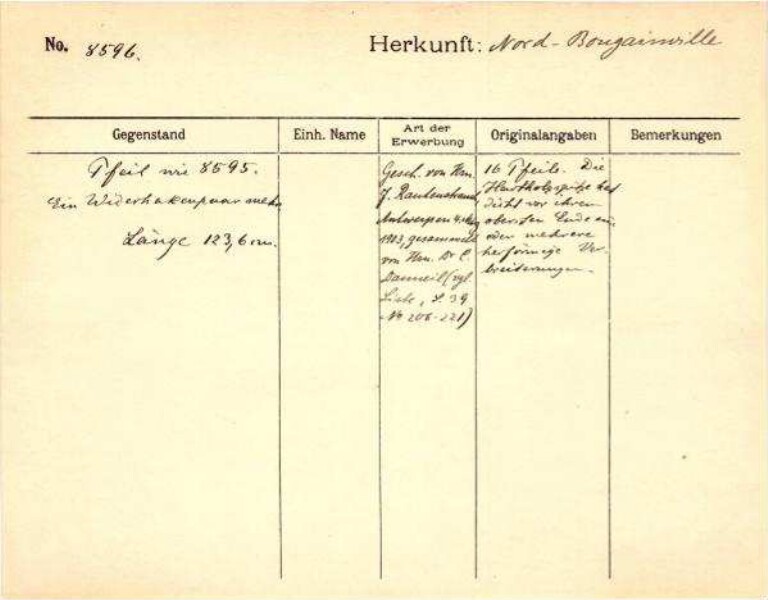 No. 8596.
Herkunft: Nord-Bougainville
Gegenstand
Einh. Name
Art der Erwerbung
Originalangaben
Bemerkungen
Pfeil wie 8595.
Ein Widerhakenpaar mehr
Länge 123,6 cm.
Gesch. von Hrn.
J. Rautenstrauch,
Antwerpen
1903, gesammelt
von Hrn. Dr C.
Danneil (vgl.
Liste, S. 39
No 206-221)
16 Pfeile. Die
Hartholzspitze hat
dicht vor ihrem
obersten Ende ein
oder mehrere
förmige Ver-
breiterungen.